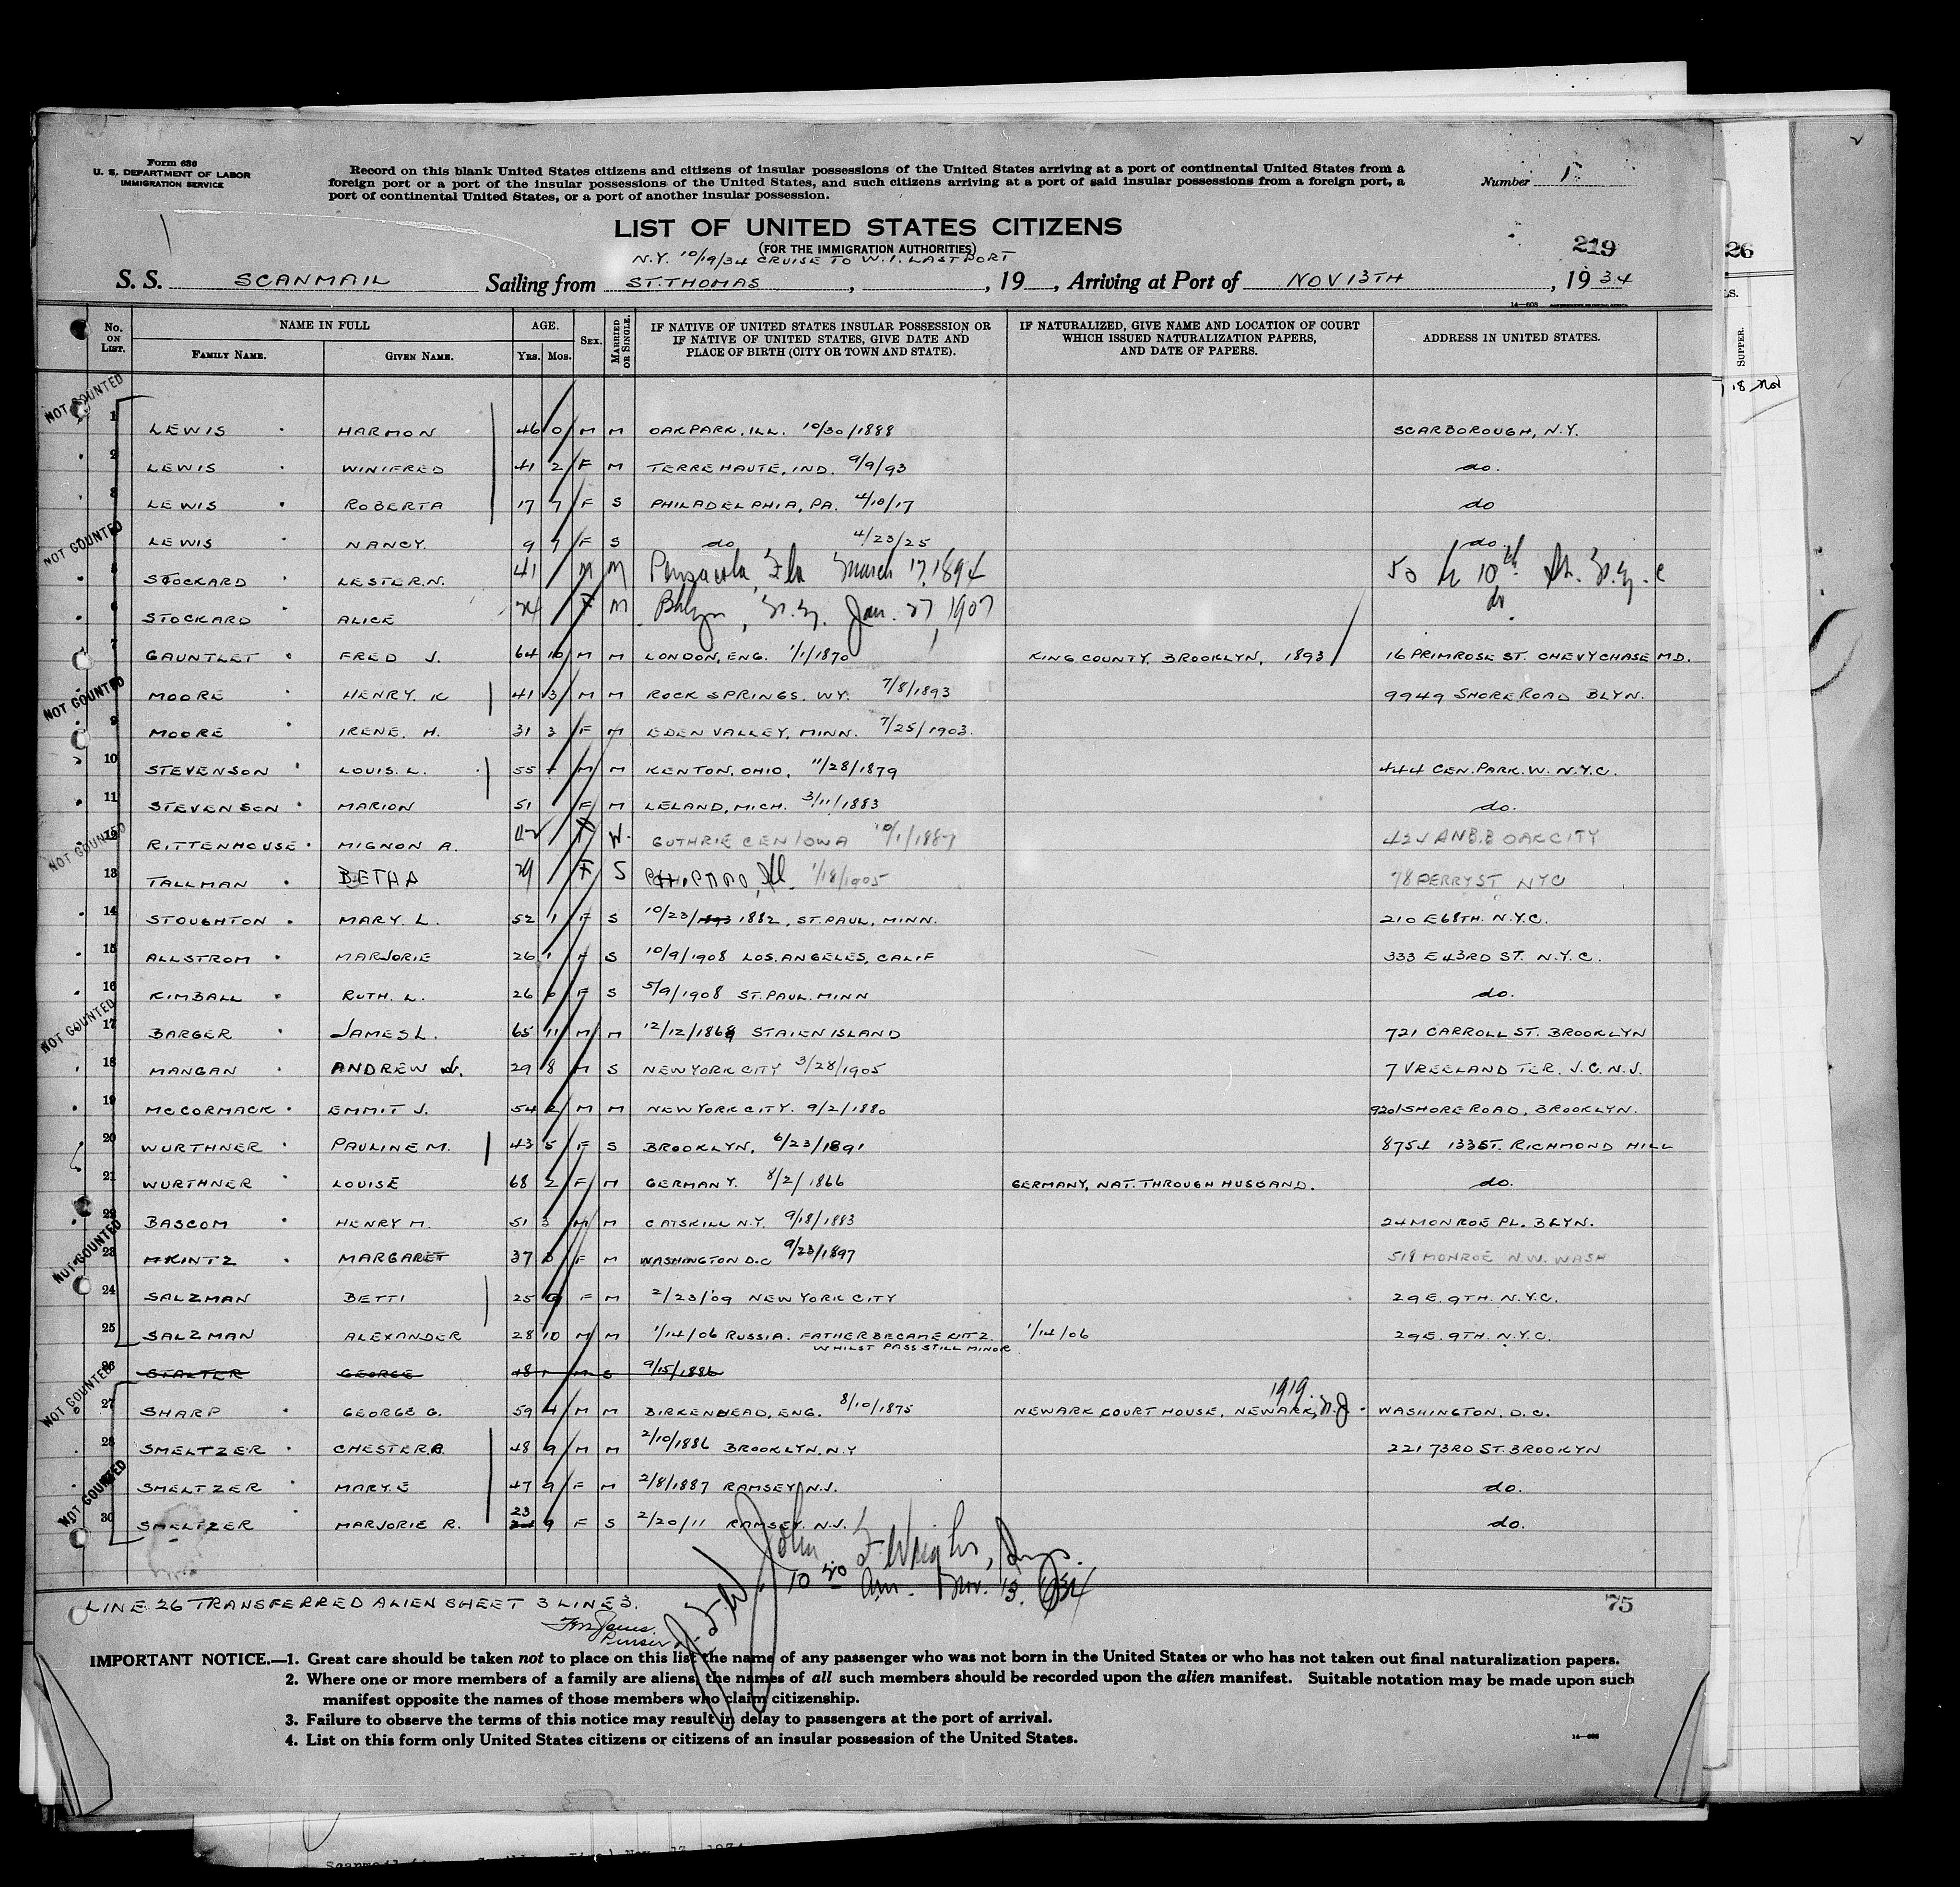 Form 630
U. S. DEPARTMENT OF LABOR
IMMIGRATION SERVICE
Record on this blank United States citizens and citizens of insular possessions of the United States arriving at a port of continental United States from a
foreign port or a port of the insular possessions of the United States, and such citizens arriving at a port of said insular possessions from a foreign port, a
port of continental United States, or a port of another insular possession.
Number 1
LIST OF UNITED STATES CITIZENS
(FOR THE IMMIGRATION AUTHORITIES)
219
N.Y. 10/19/34 CRUISE TO W.I. LAST PORT
S. S. SCANMAIL Sailing from ST. THOMAS, , 19 , Arriving at Port of NOV 13TH, 1934
No. ON LIST. NAME IN FULL FAMILY NAME. GIVEN NAME. AGE. YRS. MOS. SEX. MARRIED OR SINGLE. IF NATIVE OF UNITED STATES INSULAR POSSESSION OR IF NATIVE OF UNITED STATES, GIVE DATE AND PLACE OF BIRTH (CITY OR TOWN AND STATE). IF NATURALIZED, GIVE NAME AND LOCATION OF COURT WHICH ISSUED NATURALIZATION PAPERS, AND DATE OF PAPERS. ADDRESS IN UNITED STATES.
NOT COUNTED
1 LEWIS HARMON 46 0 M M OAK PARK, ILL. 10/30/1888 SCARBOROUGH, N.Y.
2 LEWIS WINIFRED 41 2 F M TERRE HAUTE, IND. 9/9/93 do.
3 LEWIS ROBERTA 17 7 F S PHILADELPHIA, PA. 4/10/17 do
NOT COUNTED
LEWIS NANCY. 9 7 F S do 4/23/25 do.
5 STOCKARD LESTER. N. 41 M M Pensacola Fla March 17, 1894 50 W 10th St. N.Y. C
6 STOCKARD ALICE F M Bklyn, N.Y. Jan. 27, 1907 do.
7 GAUNTLET FRED J. 64 10 M M LONDON, ENG. 1/1/1870 KING COUNTY, BROOKLYN, 1893 16 PRIMROSE ST. CHEVY CHASE MD.
NOT COUNTED
MOORE HENRY. K 41 3 M M ROCK SPRINGS. WY. 7/8/1893 9949 SHORE ROAD BLYN.
9 MOORE IRENE. H. 31 3 F M EDEN VALLEY, MINN. 7/25/1903.
10 STEVENSON LOUIS. L. 55 M M KENTON, OHIO, 11/28/1879 444 CEN. PARK. W. N.Y.C.
11 STEVENSON MARION 51 F M LELAND, MICH. 3/11/1883 do.
NOT COUNTED
12 RITTENHOUSE MIGNON A. F W. GUTHRIE CEN IOWA OAK CITY
13 TALLMAN BETHA 29 F S 1/18/1905 78 PERRY ST NYC
14 STOUGHTON MARY. L. 52 1 F S 10/23/1893 1882, ST. PAUL, MINN. 210 E 68TH. N.Y.C.
15 ALLSTROM MARJORIE 26 1 F S 10/9/1908 LOS. ANGELES, CALIF 333 E 43RD ST. N.Y.C.
16 KIMBALL RUTH. L. 26 6 F S 5/9/1908 ST. PAUL. MINN do.
NOT COUNTED
17 BARGER JAMES L. 65 11 M M 12/12/1868 STATEN ISLAND 721 CARROLL ST. BROOKLYN
18 MANGAN ANDREW J. 29 8 M S NEW YORK CITY 3/28/1905 7 VREELAND TER. J.C. N.J.
19 McCORMACK EMMIT J. 54 2 M M NEW YORK CITY. 9/2/1880 9201 SHORE ROAD, BROOKLYN.
20 WURTHNER PAULINE M. 43 5 F S BROOKLYN, 6/23/1891 8754 133 ST. RICHMOND HILL
21 WURTHNER LOUISE 68 2 F M GERMANY. 8/2/1866 GERMANY, NAT. THROUGH HUSBAND. do.
22 BASCOM HENRY M. 51 3 M M CATSKILL N.Y. 9/18/1883 24 MONROE PL. BLYN.
NOT COUNTED
23 MKINTZ MARGARET 37 F M WASHINGTON D.C 9/23/1897 MONROE N.W. WASH
24 SALZMAN BETTI 25 F M 2/23/'09 NEW YORK CITY 29 E. 9TH. N.Y.C.
25 SALZMAN ALEXANDER 28 10 M M 1/14/06 RUSSIA. FATHER BECAME CITZ. 1/14/06 29 E. 9TH. N.Y.C.
WHILST PASS STILL MINOR
26 STALTER GEORGE 48 1 M S 9/15/1886
NOT COUNTED
27 SHARP GEORGE G. 59 4 M M BIRKENHEAD, ENG. 8/10/1875 NEWARK COURT HOUSE, NEWARK, N.J. 1919. WASHINGTON, D.C.
28 SMELTZER CHESTER A. 48 9 M M 2/10/1886 BROOKLYN, N.Y 221 73RD ST. BROOKYN
SMELTZER MARY. E 47 9 F M 2/8/1887 RAMSEY N.J. do.
NOT COUNTED
30 SMELTZER MARJORIE R. 23 9 F S 2/20/11 RAMSEY. N.J. do.
John F. Wright, Insp.
10 30 am. Nov. 13. 1934
J.F.W.
LINE 26 TRANSFERRED ALIEN SHEET 3 LINE 3.
Purser
75
IMPORTANT NOTICE.—1. Great care should be taken not to place on this list the name of any passenger who was not born in the United States or who has not taken out final naturalization papers.
2. Where one or more members of a family are aliens, the names of all such members should be recorded upon the alien manifest. Suitable notation may be made upon such
manifest opposite the names of those members who claim citizenship.
3. Failure to observe the terms of this notice may result in delay to passengers at the port of arrival.
4. List on this form only United States citizens or citizens of an insular possession of the United States.
26
SUPPER.
18 Nov